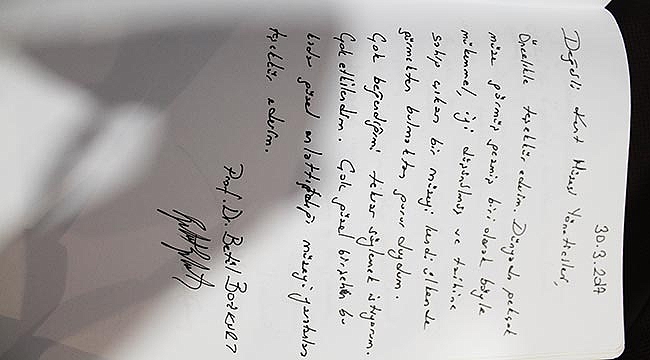 30.3.2017
Değerli Kent Müzesi Yöneticileri,
Öncelikle teşekkür ederim. Dünyada pekçok
müze görmüş gezmiş biri olarak böyle
mükemmel, iyi düşünülmüş ve tarihine
sahip çıkan bir müzeyi kendi ülkemde
görmekten bulmaktan gurur duydum.
Çok beğendiğimi tekrar söylemek istiyorum.
Çok etkilendim. Çok güzel bu
kadar güzel müzeyi yaratanlara
teşekkür ederim.
Prof. Dr. Betül BOZKURT